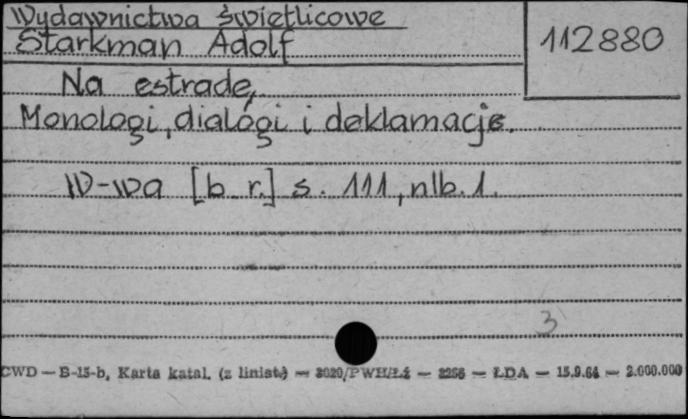 Wydawnictwa świetlicowe
Starkman Adolf
112880
Na estradę,
Monologi, dialogi i deklamacje.
W-wa [b r.] s. 111, nlb. 1.
3
CWD — B-15-b, Karta katal. (z linistą) — 3020/PWH/Łź — 2256 — ŁDA — 15.9.64 — 2.000.000